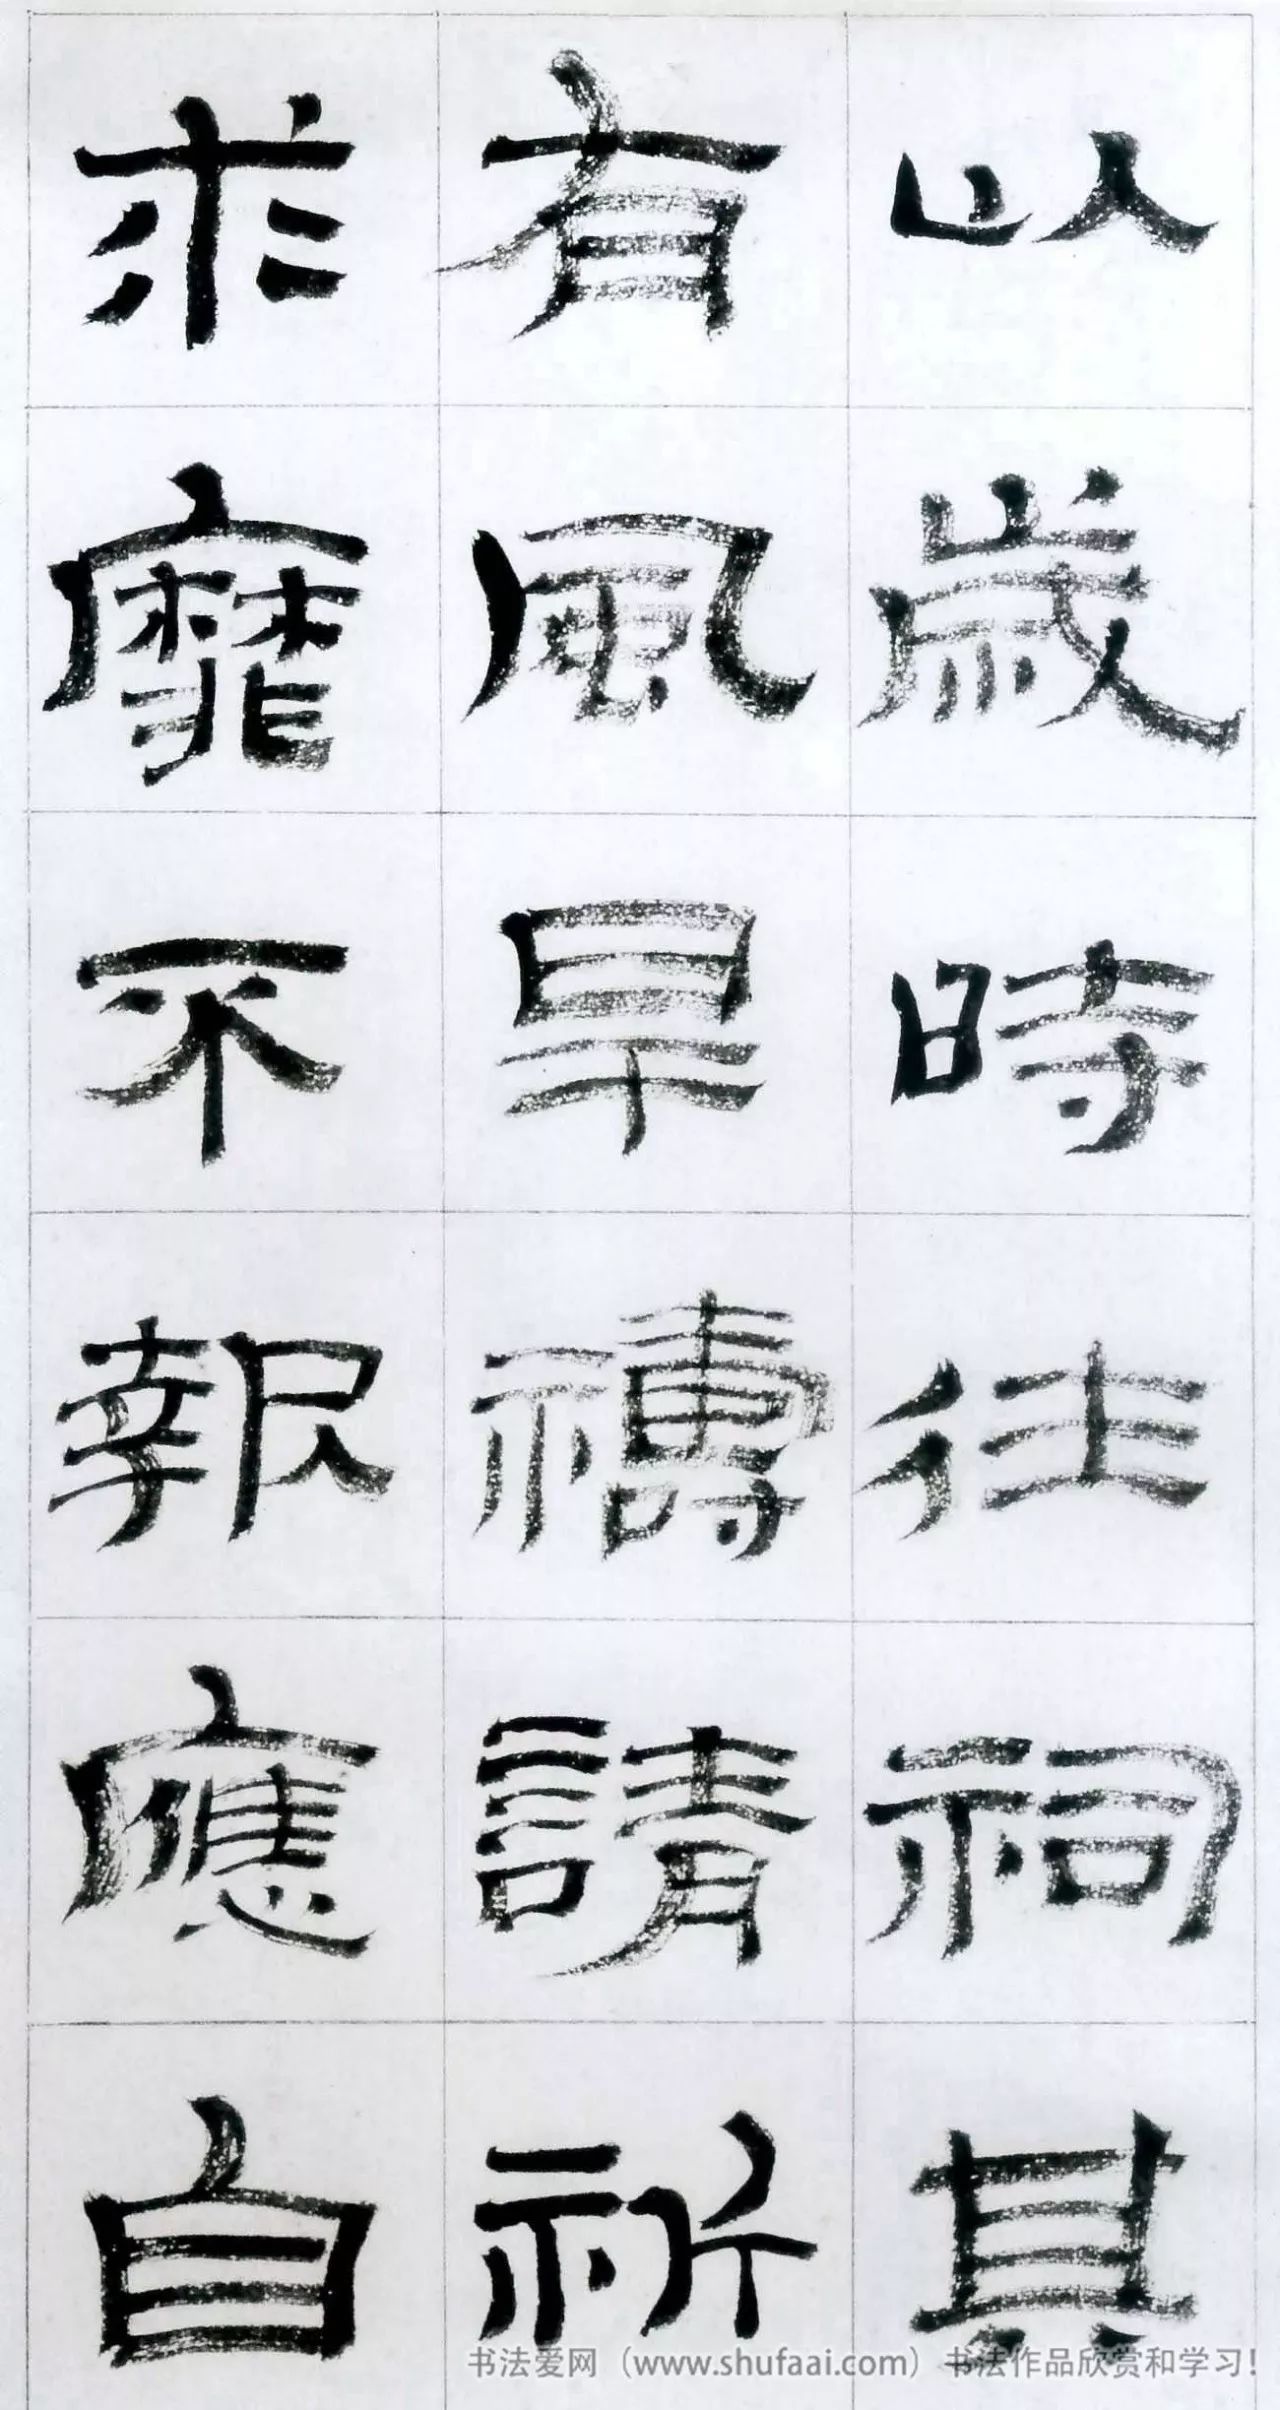 以歲時往祠其
有風旱禱請祈
求靡不報應自
书法爱网（www.shufaai.com）书法作品欣赏和学习！